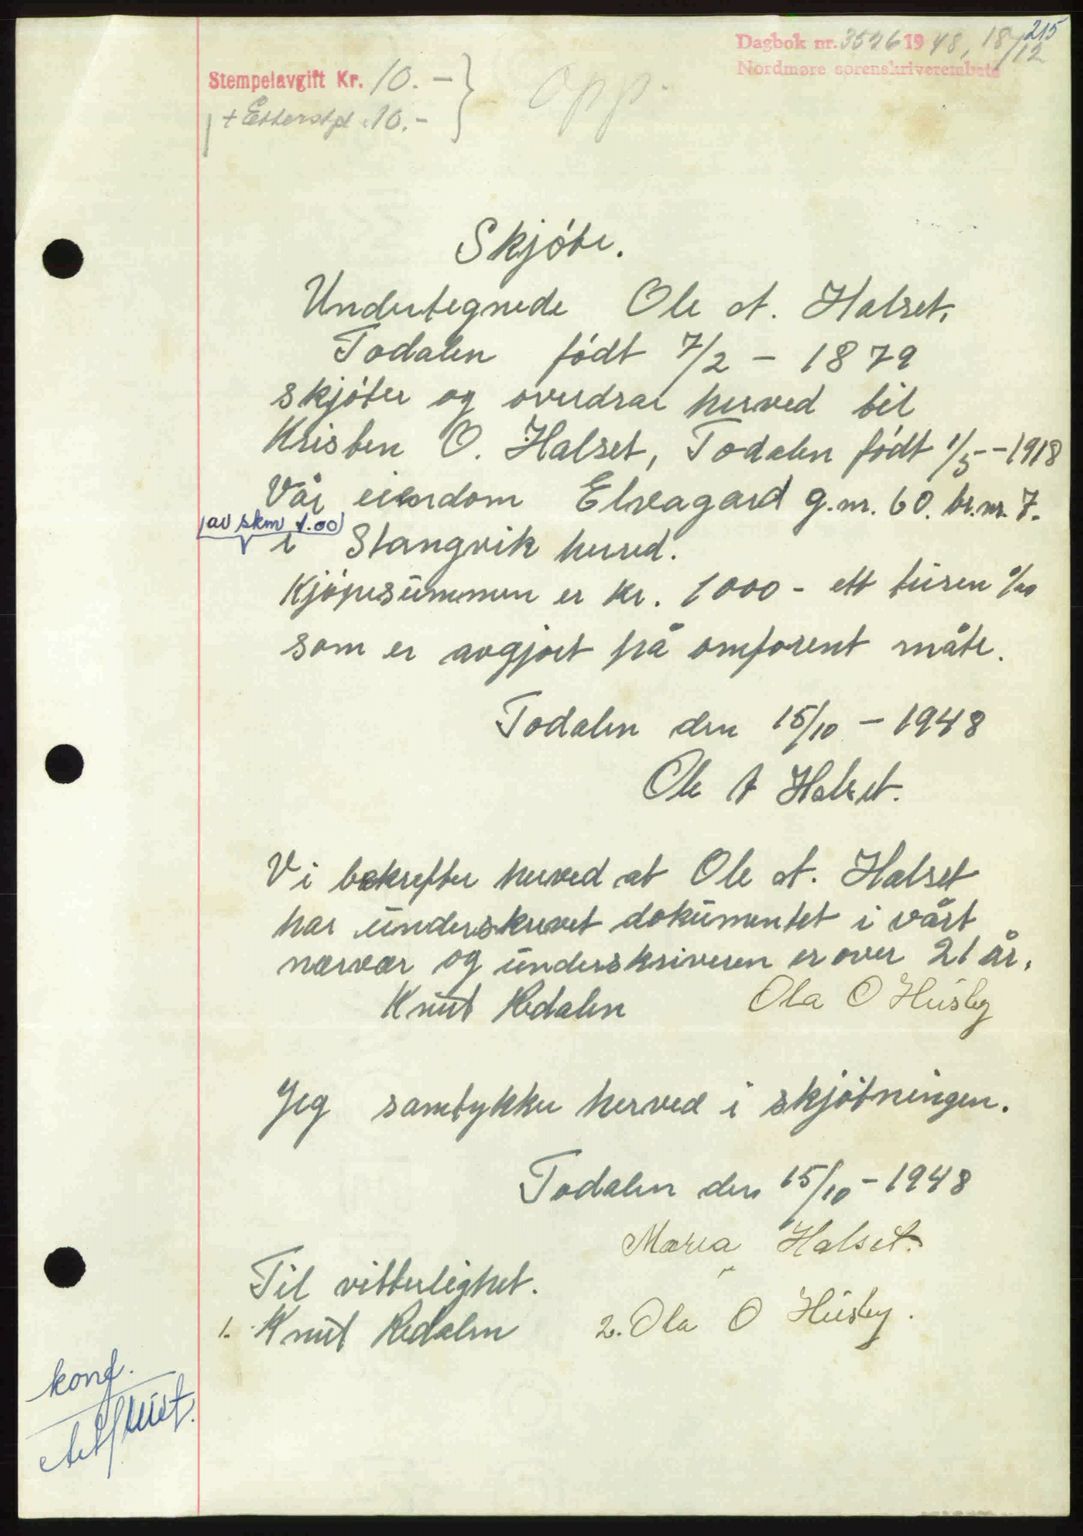 215
Dagbok nr. 3526 1948, 18/12
Nordmøre sorenskriverembete
Stempelavgift Kr. 10.-
+ Etterstpl. 10.-
Opp.
Skjöte.
Undertegnede Ole A. Halset,
Todalen født 7/2 - 1879
skjøter og overdrar herved til
Kristen O. Halset, Todalen født 1/5 - 1918
Vår eiendom Elvagard g.nr. 60. br.nr. 7.
av skm 1.00
i Stangvik herred.
Kjöpesummen er kr. 1000 - ett tusen 0/00
som er avgjort på omforent måte.
Todalen den 15/10 - 1948
Ole A Halset.
Vi bekrefter herved at Ole A. Halset
har underskrevet dokumentet i vårt
nærvær og underskriveren er over 21 år.
Knut Redalen Ola O Husby
Jeg samtykker herved i skjötningen.
Todalen den 15/10 - 1948
Marea Halset.
Til vitterlighet.
1. Knut Redalen 2. Ola O Husby.
konf.